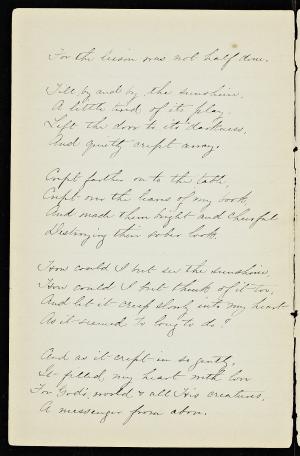 For the lesson was not half done.
Till by and by the sunshine,
A little tired of its play,
Left the door to its darkness,
And quietly crept away.
Crept farther on to the table,
Crept over the leaves of my book,
And made them bright and cheerful
Destroying their sober look.
How could I but see the sunshine,
How could I but think of it too,
And let it creep slowly into my heart
As it seemed to long to do?
And as it crept in so gently,
It filled my heart with love
For God's world & all His creatures,
A messenger from above.